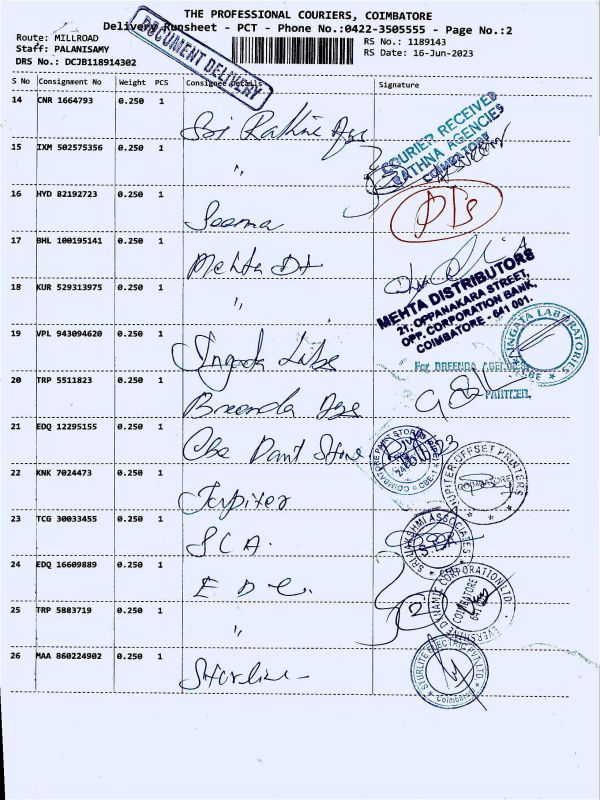 THE PROFESSIONAL COURIERS, COIMBATORE
Delivery Runsheet - PCT - Phone No.:0422-3505555 - Page No.:2
Route: MILLROAD
RS No.: 1189143
Staff: PALANISAMY
RS Date: 16-Jun-2023
DRS No.: DCJB118914302
DOCUMENT DELIVERY
S No Consignment No Weight PCS Consignee Details Signature
14 CNR 1664793 0.250 1
Sri Rathna Ags
COURIER RECEIVED
RATHNA AGENCIES
COIMBATORE
15 IXM 502575356 0.250 1
"
16 HYD 82192723 0.250 1
17 BHL 100195141 0.250 1
Mehta Dt
18 KUR 529313975 0.250 1
"
MEHTA DISTRIBUTORS
21, OPPANAKARA STREET,
OPP. CORPORATION BANK,
COIMBATORE - 641 001.
19 VPL 943094620 0.250 1
Ingata Labs
INGATA LABORATORIES
CBE
20 TRP 5511823 0.250 1
Breenda Ags
For BREENDA AGENCIES
PARTNER.
21 EDQ 12295155 0.250 1
Cbe Paint Store
COIMBATORE PAINT STORES
CBE-1
22 KNK 7024473 0.250 1
Jupiter
JUPITER OFFSET PRINTERS
COIMBATORE
23 TCG 30033455 0.250 1
SLA.
SRI LAKSHMI ASSOCIATES
24 EDQ 16609889 0.250 1
E D C.
EVERSHINE DYNAMIC CORPORATION LTD
COIMBATORE
641
25 TRP 5883719 0.250 1
"
26 MAA 860224902 0.250 1
Sturlite
STURLITE ELECTRIC PVT LTD
Coimbatore